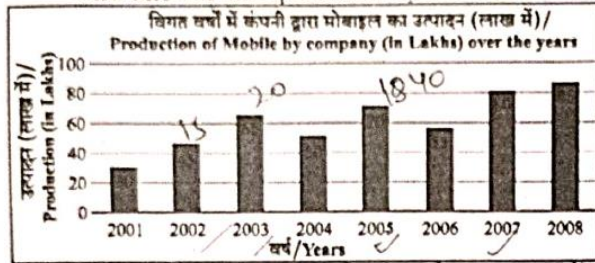 विगत वर्षों में कंपनी द्वारा मोबाइल का उत्पादन (लाख में)/
Production of Mobile by company (in Lakhs) over the years
उत्पादन (लाख में)/
Production (in Lakhs)
100
80
60
40
20
0
15
20
1840
2001 2002 2003 2004 2005 2006 2007 2008
वर्ष/Years